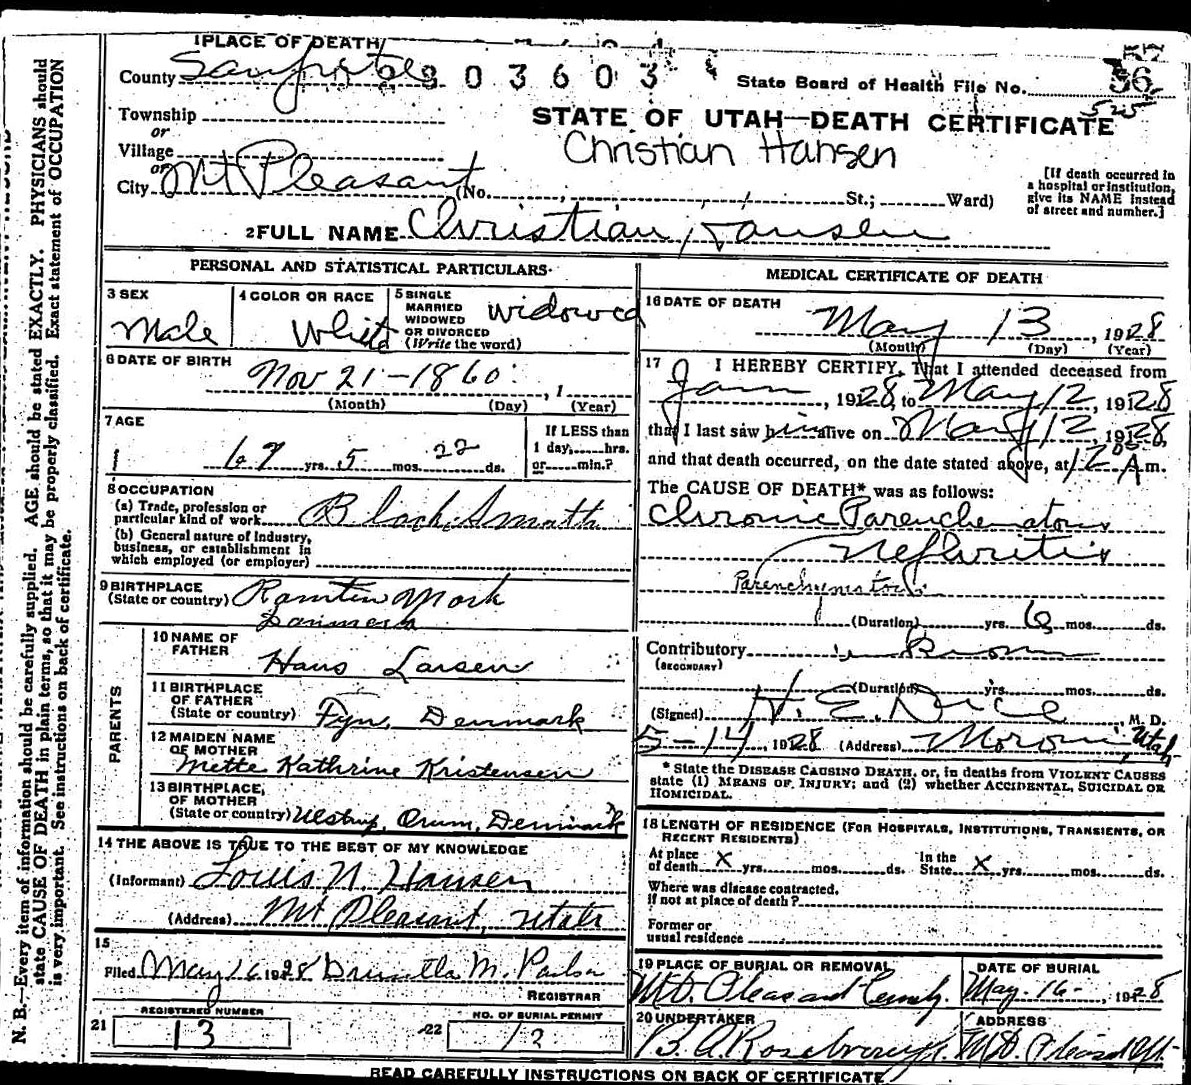 1 PLACE OF DEATH
County Sanpete 2 9 0 3 6 0 3 State Board of Health File No. 56
525
Township
or
Village
or
City Mt Pleasant (No. St.; Ward)
STATE OF UTAH—DEATH CERTIFICATE
Christian Hansen
[If death occurred in
a hospital or institution,
give its NAME instead
of street and number.]
2 FULL NAME Christian Hansen
PERSONAL AND STATISTICAL PARTICULARS
3 SEX
Male
4 COLOR OR RACE
White
5 SINGLE
MARRIED
WIDOWED
OR DIVORCED
(Write the word)
Widowed
6 DATE OF BIRTH
Nov 21-1860 , 1
(Month) (Day) (Year)
7 AGE
67 yrs. 5 mos. 22 ds.
If LESS than
1 day, hrs.
or min.?
8 OCCUPATION
(a) Trade, profession or
particular kind of work Black Smith
(b) General nature of Industry,
business, or establishment in
which employed (or employer)
9 BIRTHPLACE
(State or country) Mark
Danmark
PARENTS
10 NAME OF
FATHER
Hans Larsen
11 BIRTHPLACE
OF FATHER
(State or country) Fyn, Denmark
12 MAIDEN NAME
OF MOTHER
Mette Kathrine Kristensen
13 BIRTHPLACE,
OF MOTHER
(State or country) Ulstrup, Orum, Denmark
14 THE ABOVE IS TRUE TO THE BEST OF MY KNOWLEDGE
(Informant) Louis N. Hansen
(Address) Mt Pleasant, Utah
15
Filed May 16 1928 M. Paulsen
REGISTRAR
21 REGISTERED NUMBER
13
22 NO. OF BURIAL PERMIT
13
MEDICAL CERTIFICATE OF DEATH
16 DATE OF DEATH
May 13 , 1928
(Month) (Day) (Year)
17 I HEREBY CERTIFY, That I attended deceased from
Jan , 1928, to May 12 , 1928
that I last saw him alive on May 12 , 1928,
and that death occurred, on the date stated above, at 12 A m.
The CAUSE OF DEATH* was as follows:
Chronic Parenchematous
Nefhritis
Parenchymatous
(Duration) yrs. 6 mos. ds.
Contributory
(SECONDARY)
(Duration) yrs. mos. ds.
(Signed) H. E. Dice , M. D.
5-14 , 1928 (Address) Moroni, Utah
* State the DISEASE CAUSING DEATH, or, in deaths from VIOLENT CAUSES
state (1) MEANS OF INJURY; and (2) whether ACCIDENTAL, SUICIDAL OR
HOMICIDAL.
18 LENGTH OF RESIDENCE (FOR HOSPITALS, INSTITUTIONS, TRANSIENTS, OR
RECENT RESIDENTS)
At place
of death X yrs. mos. ds.
In the
State X yrs. mos. ds.
Where was disease contracted,
if not at place of death?
Former or
usual residence
19 PLACE OF BURIAL OR REMOVAL
Mt. Pleasant Cemety.
DATE OF BURIAL
May. 16- , 1928
20 UNDERTAKER
B. A. Rosebrough
ADDRESS
Mt. Pleasant Ut.
READ CAREFULLY INSTRUCTIONS ON BACK OF CERTIFICATE
N. B.—Every item of information should be carefully supplied. AGE should be stated EXACTLY. PHYSICIANS should
state CAUSE OF DEATH in plain terms, so that it may be properly classified. Exact statement of OCCUPATION
is very important. See instructions on back of certificate.